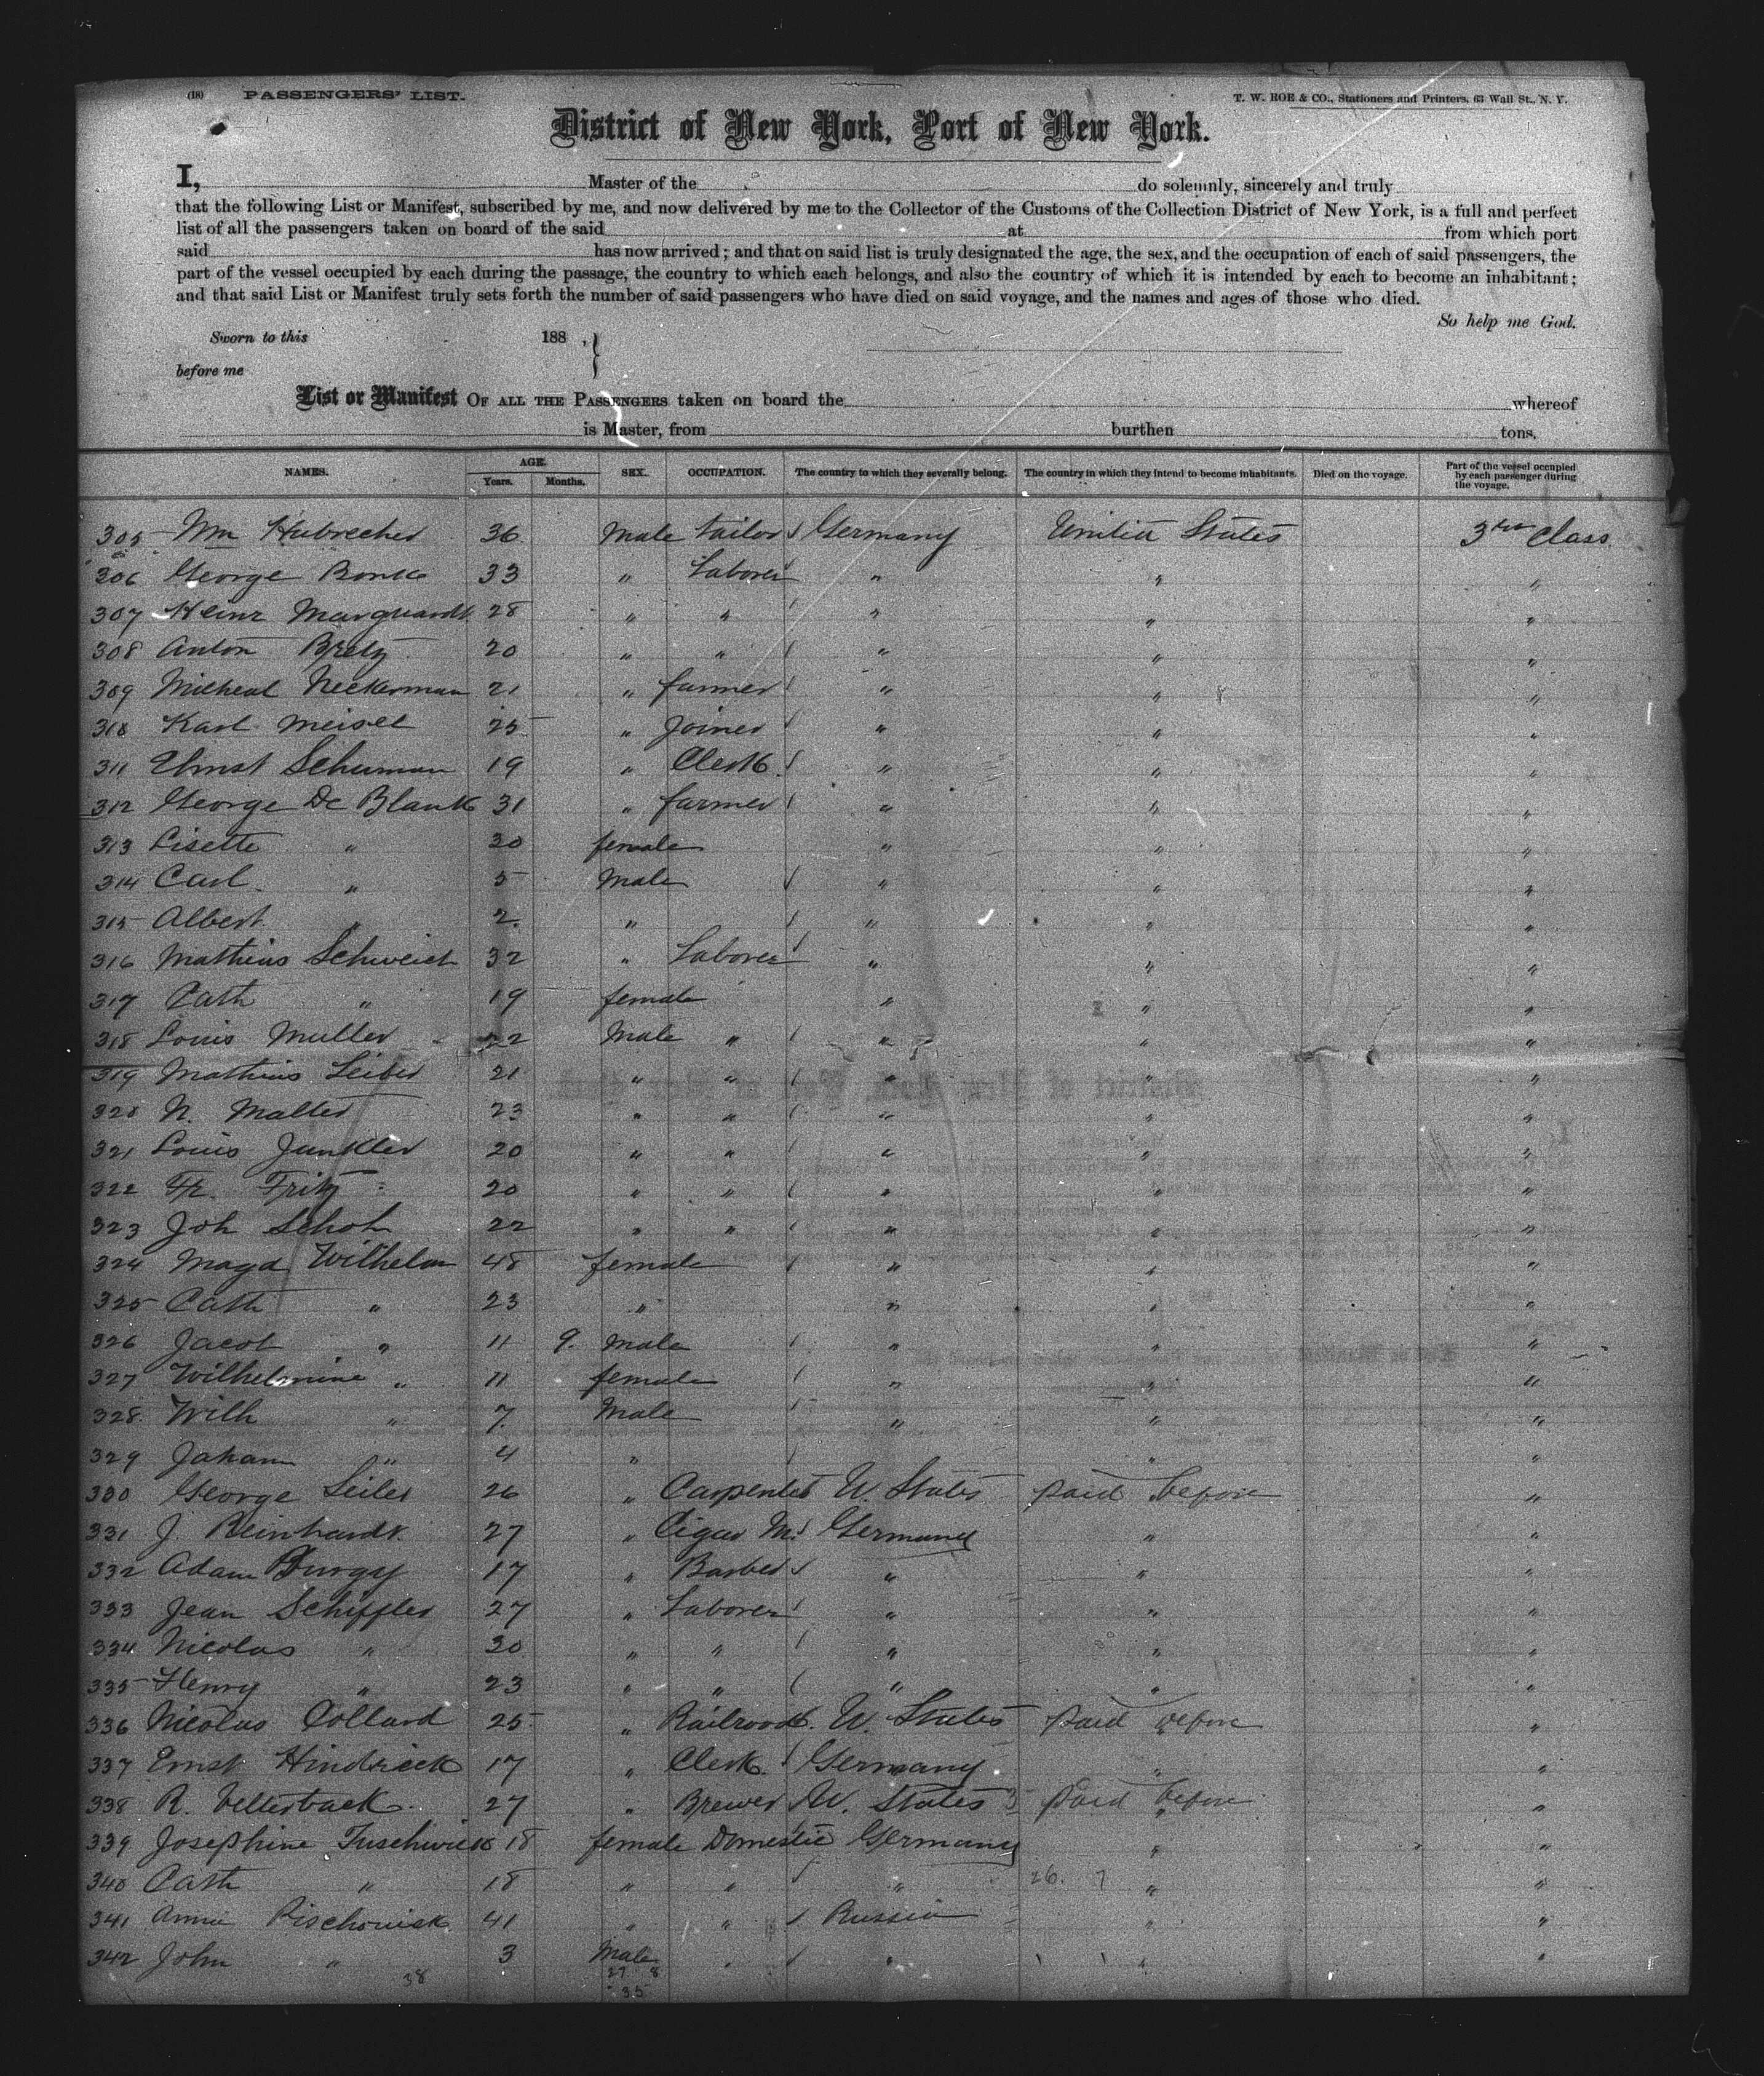 (18) PASSENGERS' LIST. T. W. ROE & CO., Stationers and Printers, 63 Wall St., N. Y.
District of New York, Port of New York.
I, Master of the do solemnly, sincerely and truly
that the following List or Manifest, subscribed by me, and now delivered by me to the Collector of the Customs of the Collection District of New York, is a full and perfect
list of all the passengers taken on board of the said at from which port
said has now arrived; and that on said list is truly designated the age, the sex, and the occupation of each of said passengers, the
part of the vessel occupied by each during the passage, the country to which each belongs, and also the country of which it is intended by each to become an inhabitant;
and that said List or Manifest truly sets forth the number of said passengers who have died on said voyage, and the names and ages of those who died.
So help me God.
Sworn to this 188 ,
before me
List or Manifest OF ALL THE PASSENGERS taken on board the whereof
is Master, from burthen tons.
NAMES. AGE. Years. Months. SEX. OCCUPATION. The country to which they severally belong. The country in which they intend to become inhabitants. Died on the voyage. Part of the vessel occupied by each passenger during the voyage.
305 Wm Hubrecher 36 Male tailor Germany United States 3rd Class
306 George 33 " Laborer " " "
307 Heinr Marquardt 28 " " " " "
308 Anton Bretz 20 " " " " "
309 Micheal Neckerman 21 " farmer " " "
310 Karl Meisel 25 " Joiner " " "
311 Ernst Schuman 19 " Clerk " " "
312 George De Blank 31 " farmer " " "
313 Lisette " 30 female " " "
314 Carl " 5 Male " " "
315 Albert " 2 " " " "
316 Mathias Schweich 32 " Laborer " " "
317 Cath " 19 female " " "
318 Louis Muller 22 Male " " " "
319 Mathias Leiber 21 " " " " "
320 N. Malter 23 " " " " "
321 Louis Junkler 20 " " " " "
322 Fr. Fritz 20 " " " " "
323 Joh Schoh 22 " " " " "
324 Magd Wilhelm 48 female " " "
325 Cath " 23 " " " "
326 Jacob " 11 9 male " " "
327 Wilhelmine " 11 female " " "
328 Wilh " 7 Male " " "
329 Johann " 4 " " " "
330 George Seiler 26 " Carpenter U. States paid before "
331 J. Reinhardt 27 " Cigar M. Germany " "
332 Adam Burgy 17 " Barber " " "
333 Jean Schiffler 27 " Laborer " " "
334 Nicolas " 30 " " " " "
335 Henry " 23 " " " " "
336 Nicolas Collard 25 " U. States paid before "
337 Ernst Hindrick 17 " Clerk Germany " "
338 R. Vetterback 27 " Brewer U. States paid before "
339 Josephine 18 female Domestic Germany " "
340 Cath " 18 " " " 26. 7 " "
341 Annie Pischowick 41 " " Russia " "
342 John " 3 Male " " " "
38 27 8
35